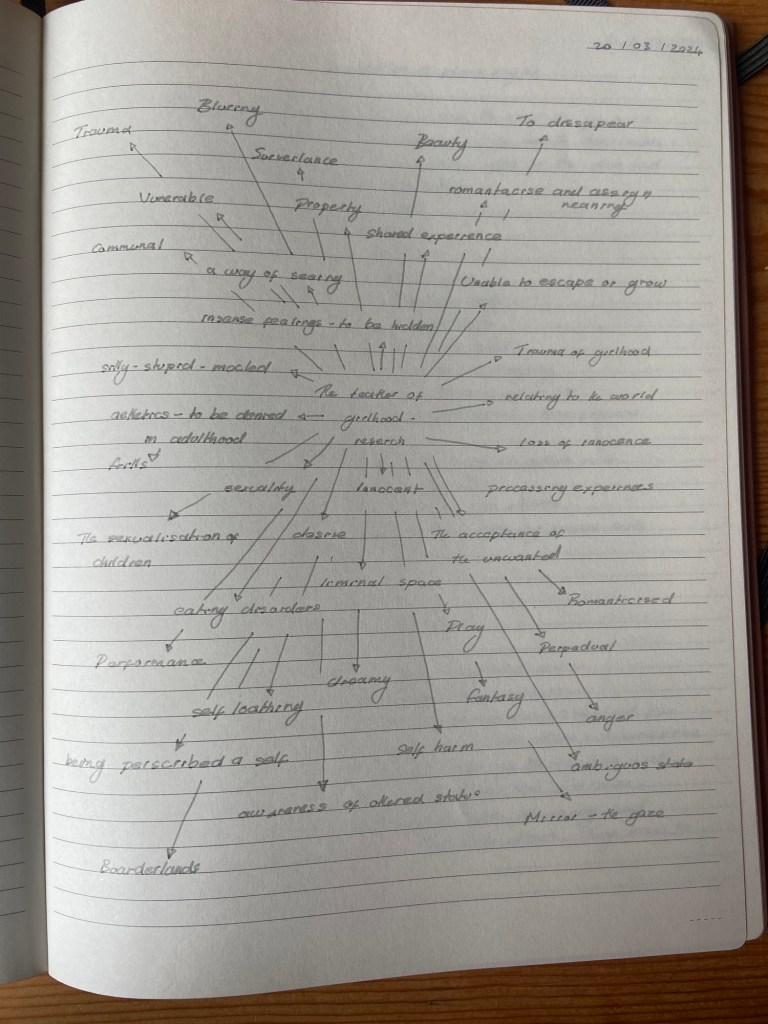 20 / 03 / 2024
Blurring
Trauma
To dissapear
Beauty
Surverlance
romantacise and assign
meaning
Vunerable
Property
shared experience
Communal
a way of seeing
Unable to escape or grow
insense fealings - to be hidden
Trauma of girlhood
silly - stupid - mocked
The texture of
relating to the world
girlhood -
in adulthood
reserch
loss of innocence
frills
sexuality
Innocent
proccessing experiences
The sexualisation of
children
observe
The acceptance of
the unwanted
limenal space
Romanticised
eating disorders
Play
Performance
Perpadual
dreamy
fantasy
self loathing
anger
self harm
being perscribed a self
ambiguos state
awareness of altered status
Mirror - the gaze
Boarderlands